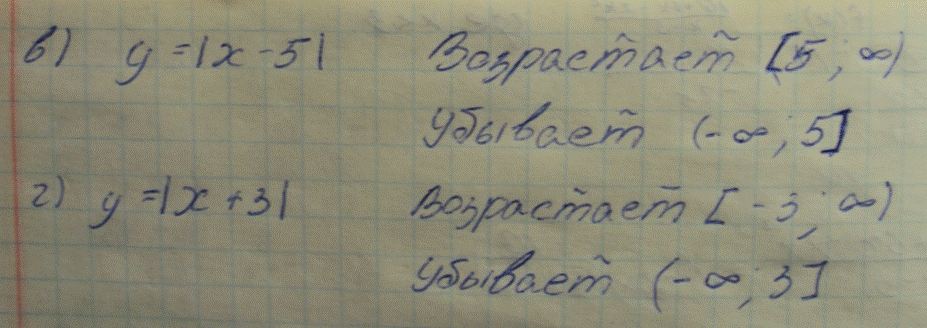 в) y = |x - 5| Возрастает [5; ∞)
Убывает (-∞; 5]
г) y = |x + 3| Возрастает [-3; ∞)
Убывает (-∞; 3]